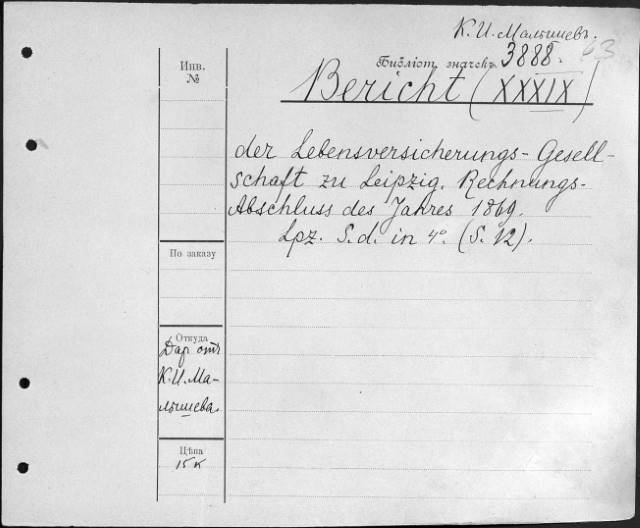 К. И. Малышевъ.
Библіот. значекъ 3888. 63
Инв.
№
Bericht (XXXIX)
der Lebensversicherungs-Gesell-
schaft zu Leipzig. Rechnungs-
Abschluss des Jahres 1869.
Lpz. S.d. in 4°. (S. 12).
По заказу
Откуда
Дар отъ
К. И. Ма-
лышева.
Цѣна
15 к